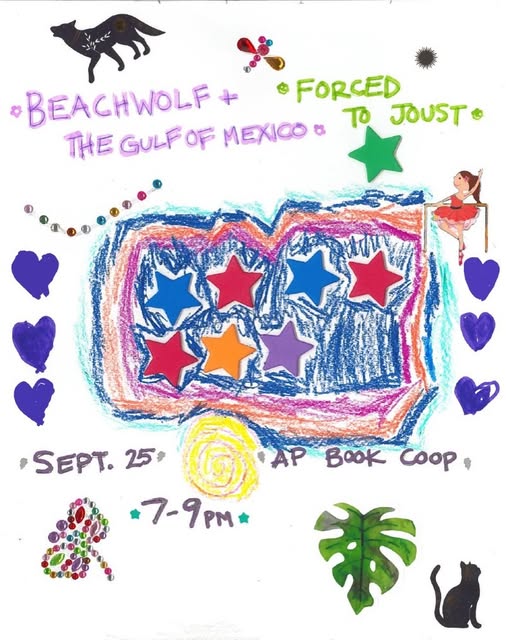 BEACHWOLF +
THE GULF OF MEXICO
FORCED
TO JOUST
SEPT. 25
AP BOOK COOP
7-9PM